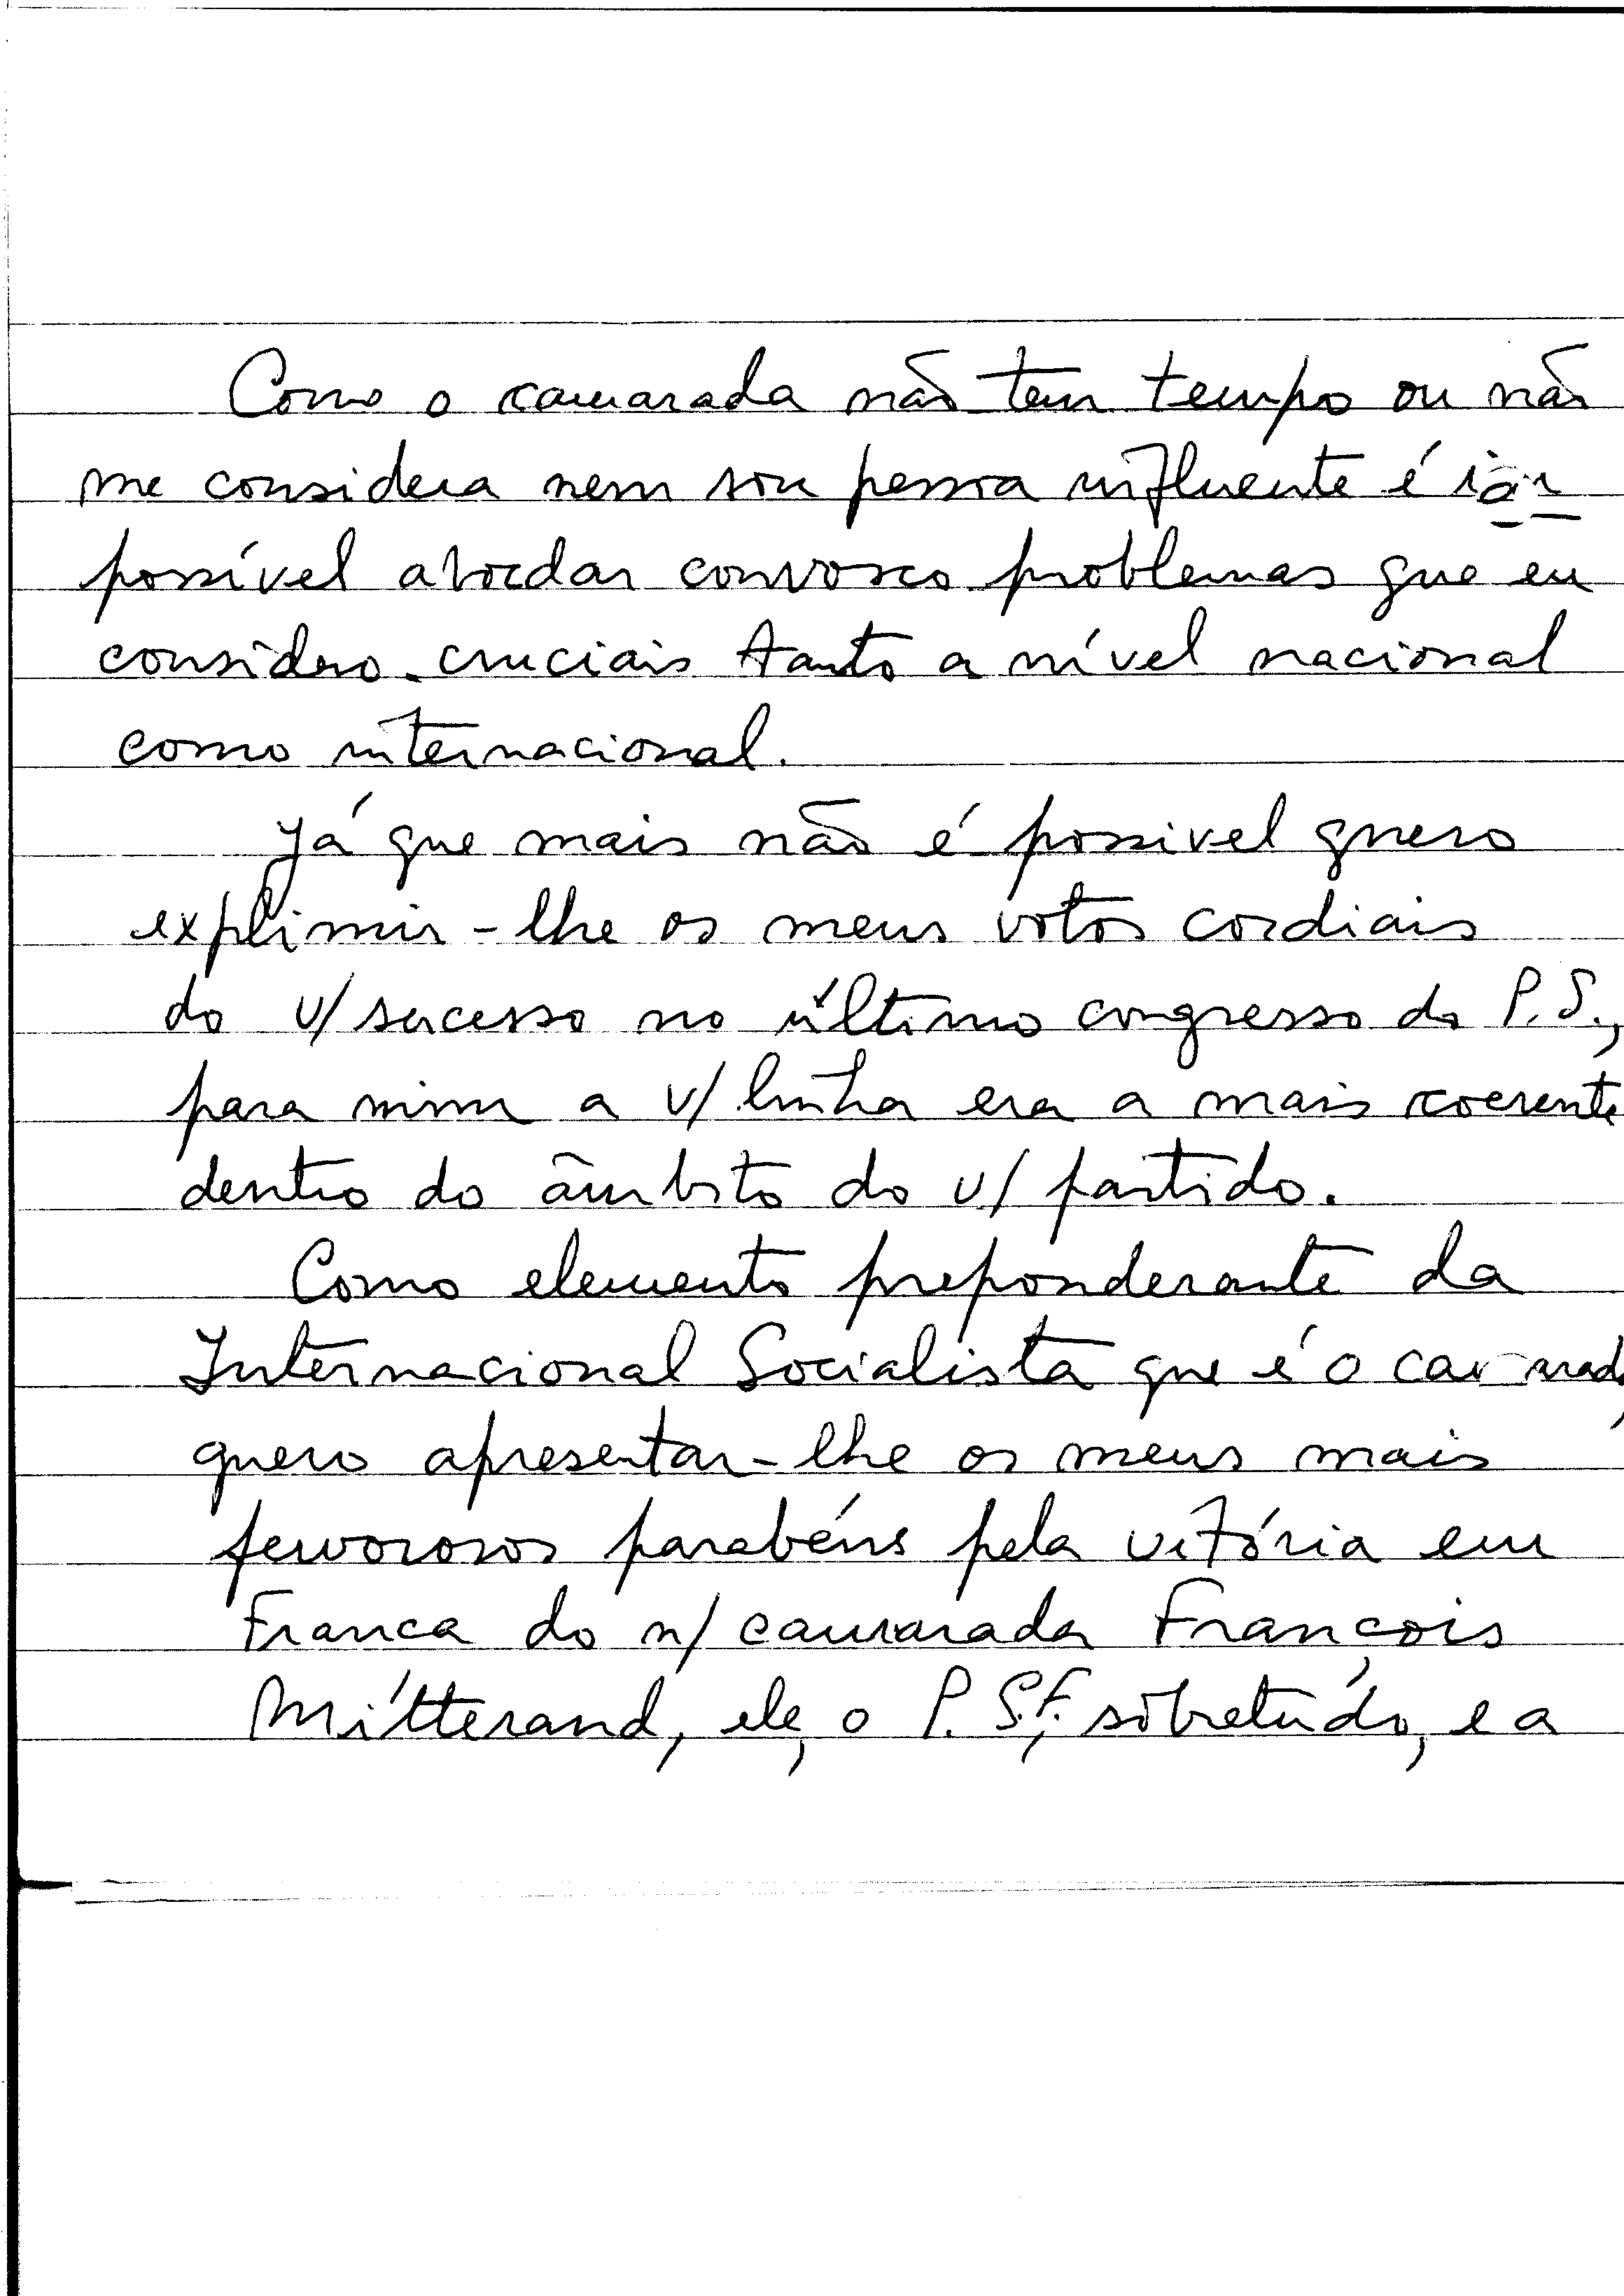 Como o camarada não tem tempo ou não
me considera nem sou pessoa influente é
possível abordar convosco problemas que eu
considero cruciais tanto a nível nacional
como internacional.
Já que mais não é possivel quero
explimir-lhe os meus votos cordiais
do v/ sucesso no último congresso do P.S.,
para mim a v/ linha era a mais coerente
dentro do âmbito do v/ partido.
Como elemento preponderante da
Internacional Socialista que é o camarada,
quero apresentar-lhe os meus mais
fervorosos parabéns pela vitória em
Franca do n/ camarada François
Mítterand, ele, o P.S.F., sobretúdo, e a